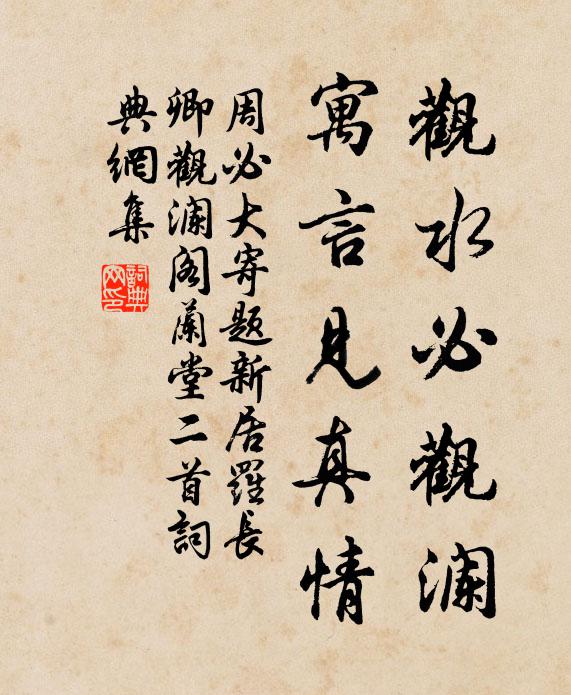 觀水必觀瀾
寓言見真情
周必大寄題新居羅長
卿觀瀾閣蘭堂二首詞
典網集
詞典網印